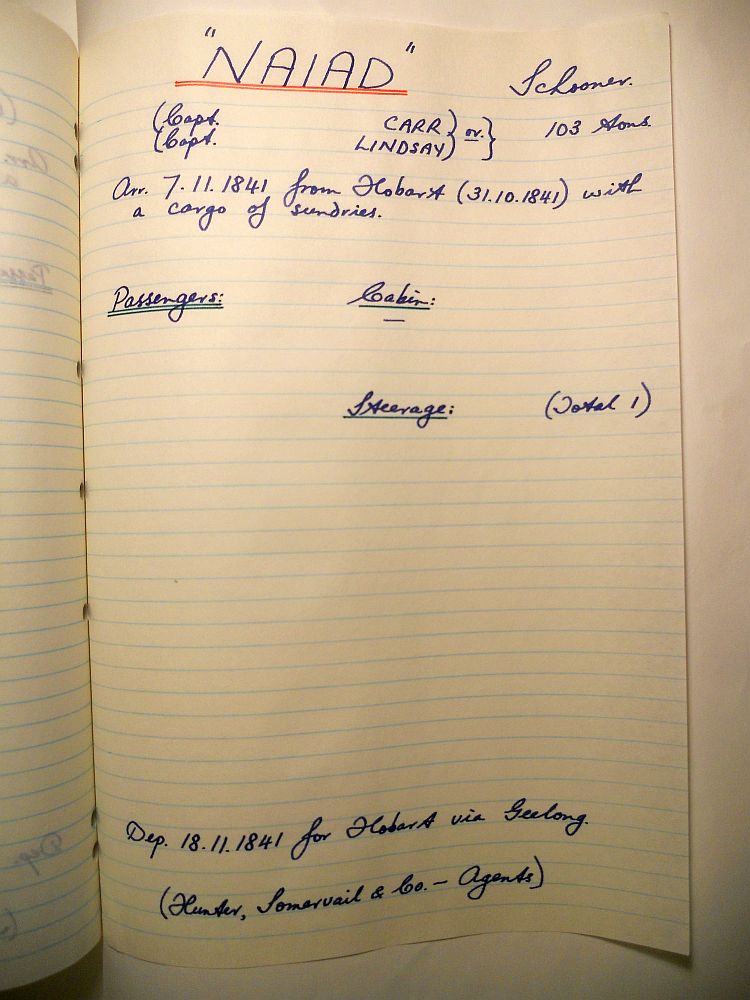 "NAIAD" Schooner.
(Capt. CARR) or.} 103 tons.
(Capt. LINDSAY)
Arr. 7.11.1841 from Hobart (31.10.1841) with
a cargo of sundries.
Passengers: Cabin:
—
Steerage: (Total 1)
Dep. 18.11.1841 for Hobart via Geelong.
(Hunter, Somervail & Co. — Agents)